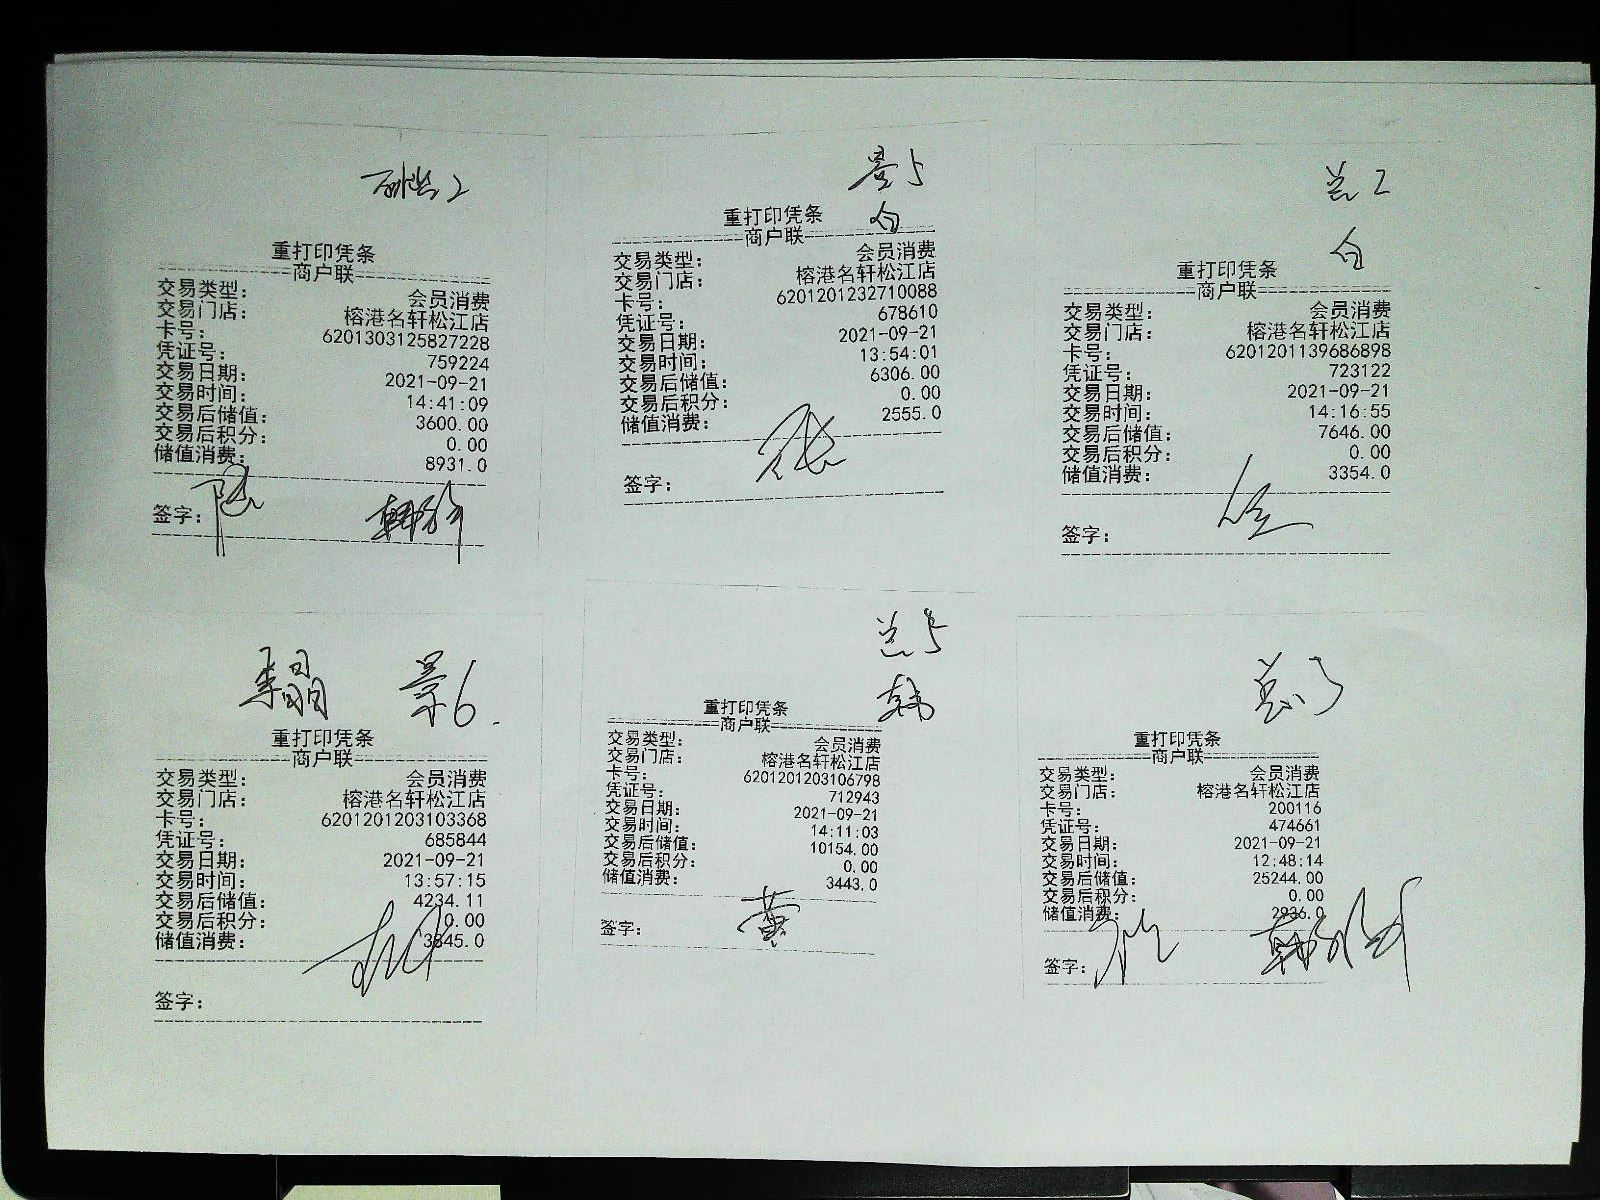 重打印凭条
商户联
交易类型: 会员消费
交易门店: 榕港名轩松江店
卡号: 6201303125827228
凭证号: 759224
交易日期: 2021-09-21
交易时间: 14:41:09
交易后储值: 3600.00
交易后积分: 0.00
储值消费: 8931.0
签字: 陆
景5
白
重打印凭条
商户联
交易类型: 会员消费
交易门店: 榕港名轩松江店
卡号: 6201201232710088
凭证号: 678610
交易日期: 2021-09-21
交易时间: 13:54:01
交易后储值: 6306.00
交易后积分: 0.00
储值消费: 2555.0
签字: 张
兰2
白
重打印凭条
商户联
交易类型: 会员消费
交易门店: 榕港名轩松江店
卡号: 6201201139686898
凭证号: 723122
交易日期: 2021-09-21
交易时间: 14:16:55
交易后储值: 7646.00
交易后积分: 0.00
储值消费: 3354.0
签字:
景6
重打印凭条
商户联
交易类型: 会员消费
交易门店: 榕港名轩松江店
卡号: 6201201203103368
凭证号: 685844
交易日期: 2021-09-21
交易时间: 13:57:15
交易后储值: 4234.11
交易后积分: 0.00
储值消费: 3845.0
签字:
兰5
韩
重打印凭条
商户联
交易类型: 会员消费
交易门店: 榕港名轩松江店
卡号: 6201201203106798
凭证号: 712943
交易日期: 2021-09-21
交易时间: 14:11:03
交易后储值: 10154.00
交易后积分: 0.00
储值消费: 3443.0
签字: 黄
重打印凭条
商户联
交易类型: 会员消费
交易门店: 榕港名轩松江店
卡号: 200116
凭证号: 474661
交易日期: 2021-09-21
交易时间: 12:48:14
交易后储值: 25244.00
交易后积分: 0.00
储值消费: 2936.0
签字: